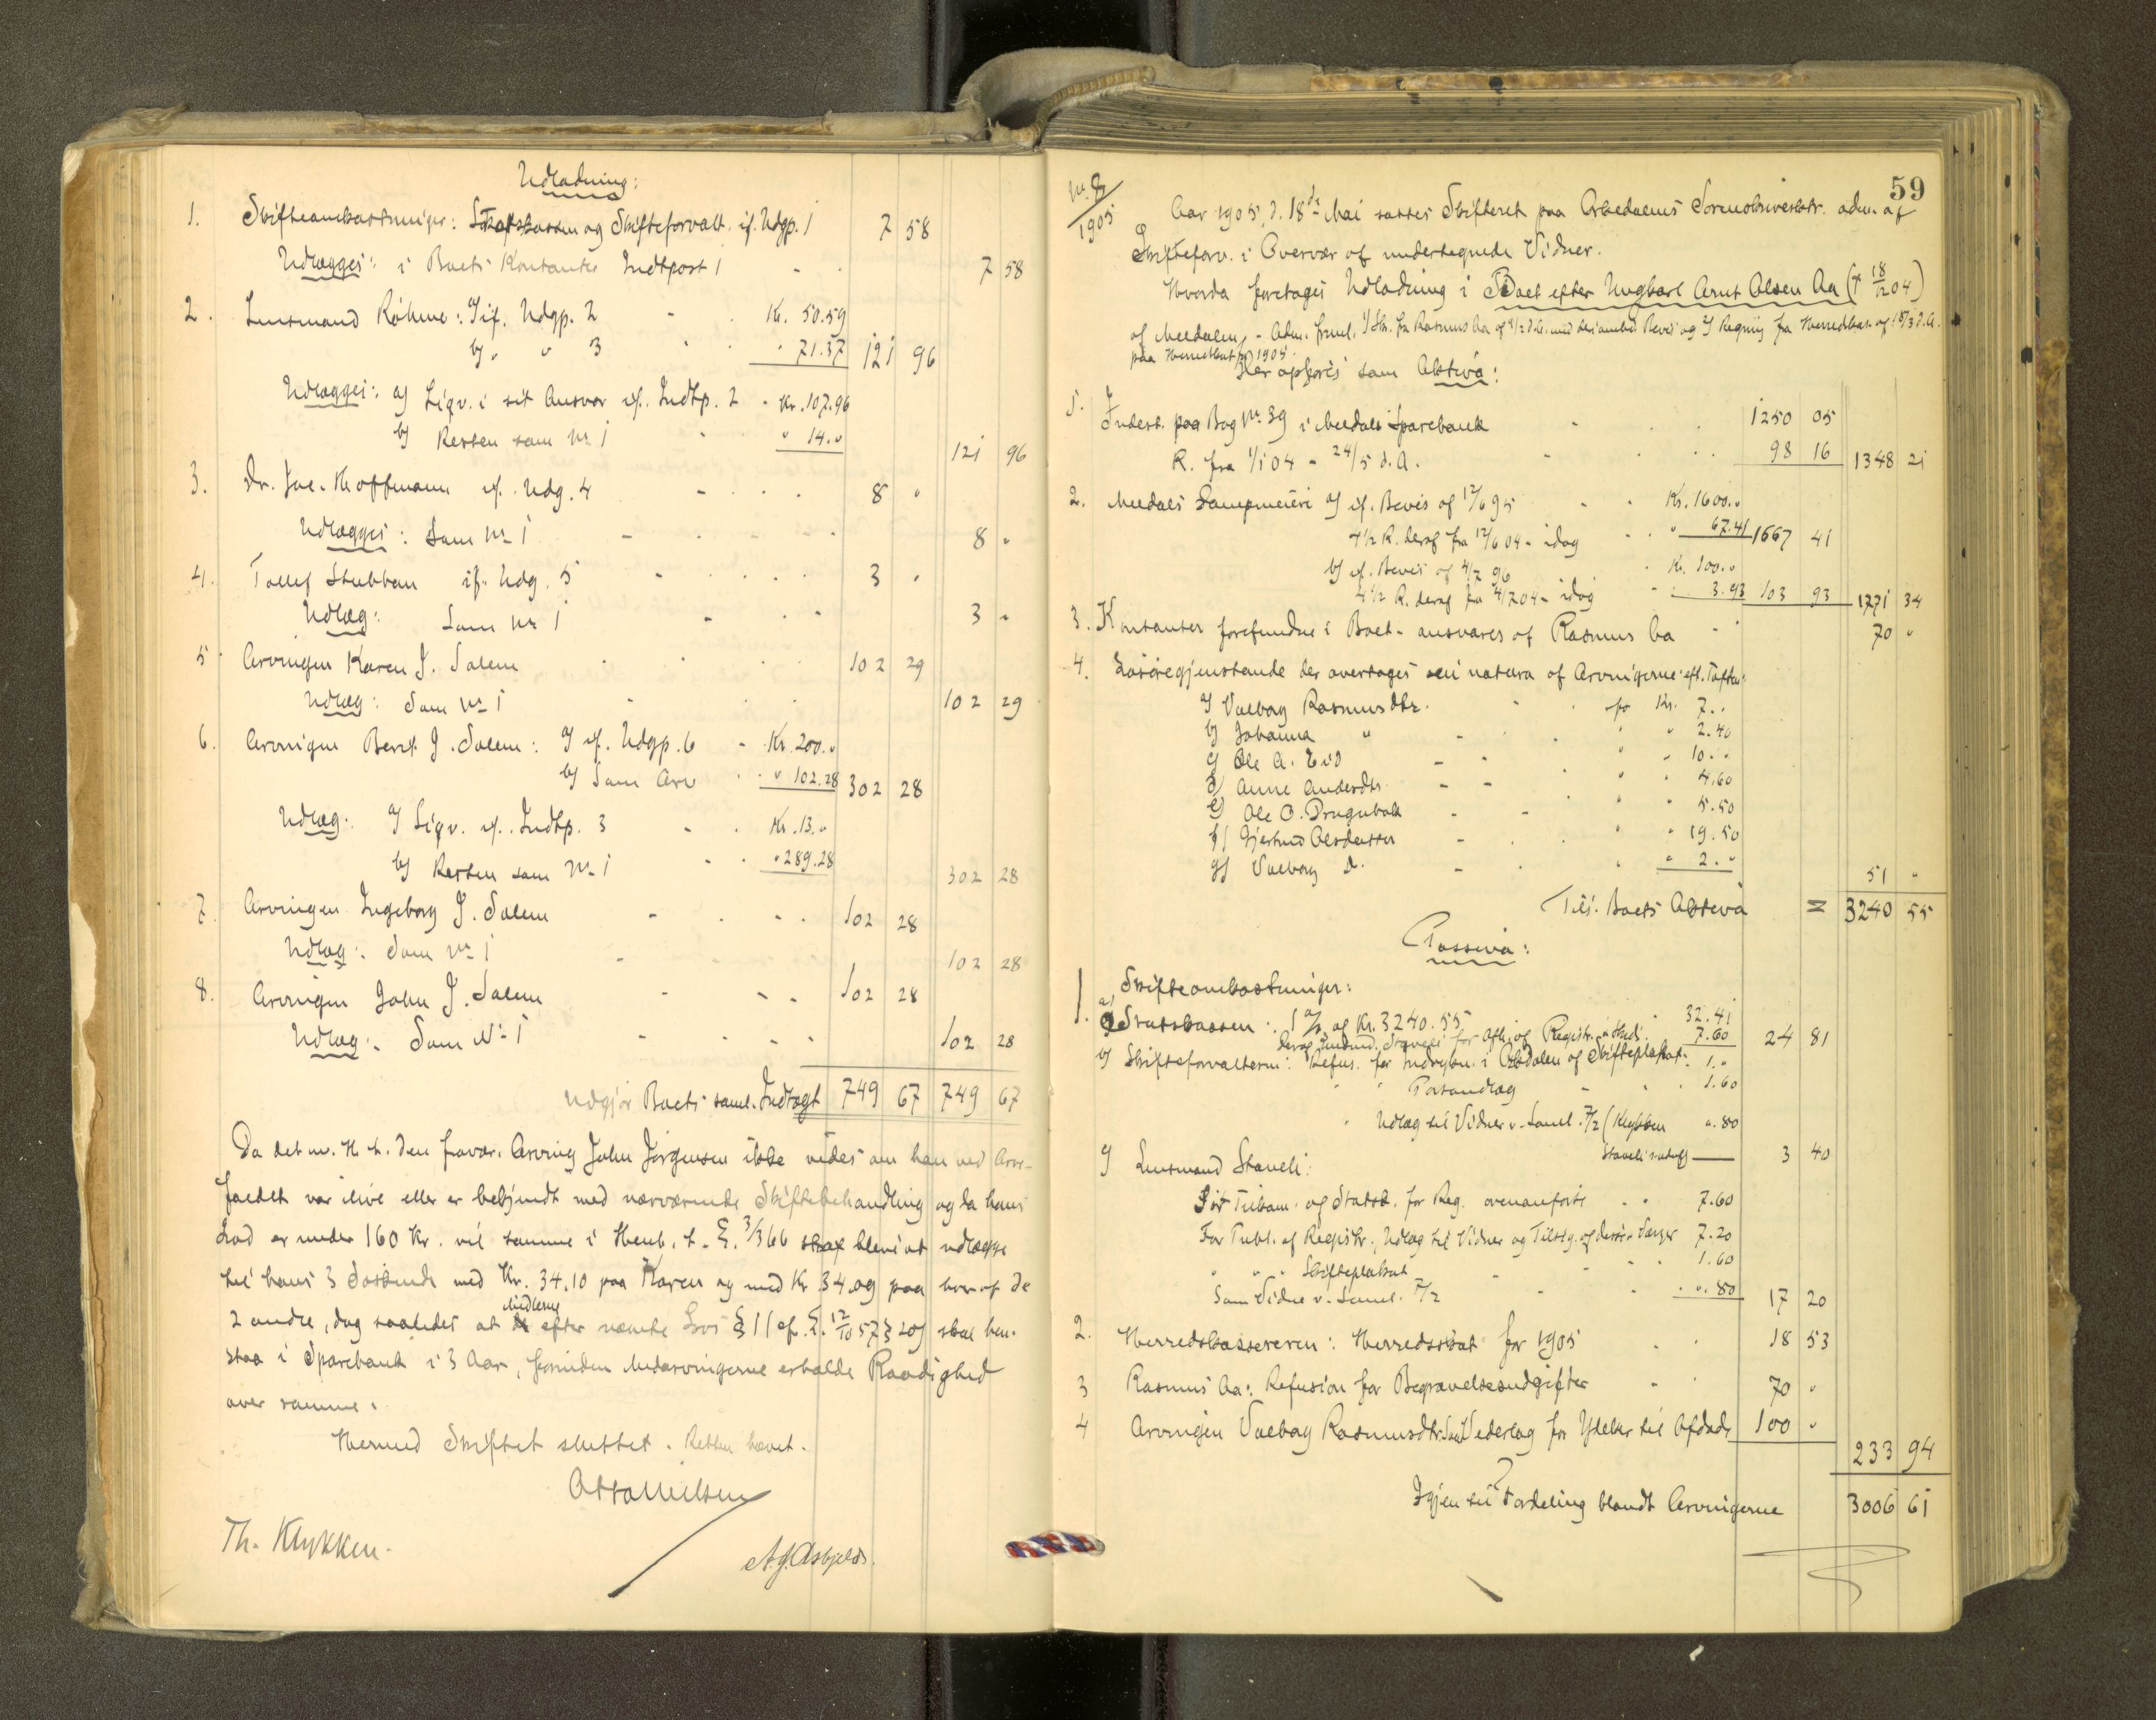 Udlodning:
1. Skifteomkostninger: Statskassen og Skifteforvalt. if. Udgp. 1 7 58
Udlægges: i Boets Kontanter Indtpost 1 7 58
2. Lensmand Røhme: a) if. Udgp. 2 Kr. 50.59
b) " " 3 " 71.37 121 96
Udlægges: a) Liqv. i sit Ansvar if. Indtp. 2 Kr. 107.96
b) Resten som No 1 " 14." 121 96
3. Dr. Joc. Hoffmann if. Udg. 4 8 "
Udlægges: Som No 1 8 "
4. Tollef Stubban if. Udg. 5 3 "
Udlæg: Som No 1 3 "
5 Arvingen Karen J. Solem 102 29
Udlæg: Som No 1 102 29
6. Arvingen Beret J. Solem: a) if. Udgp. 6 Kr. 200."
b) Som Arv " 102.28 302 28
Udlæg: a) Liqv. if. Indtp. 3 Kr. 13."
b) Resten som No 1 " 289.28 302 28
7. Arvingen Ingeborg J. Solem 102 28
Udlæg: Som No 1 102 28
8. Arvingen John J. Solem 102 28
Udlæg: Som No 1 102 28
Udgjør Boets saml. Indtægt 749 67 749 67
Da det m. H. t. den fravær. Arving John Jørgensen ikke vides om han ved Arve-
faldet var ilive eller er bekjendt med nærværende Skiftebehandling og da hans
Lod er under 160 Kr. vil samme i Henh. t. L. 3/3 66 blive at udlægge
til hans 3 Søskende med Kr. 34.10 paa Karen og med Kr 34.09 paa hver af de
2 andre, dog saaledes at Midlerne efter nævnte Lovs § 11 cf. L. 12/10 57 § 20 skal hen-
staa i Sparebank i 3 Aar, forinden Medarvingerne erholde Raadighed
over samme.
Hermed Skiftet sluttet. Retten hævet.
Otto Nilsen
Th. Klykken.
A. J. Asbjells.
59
No 8/1905
Aar 1905, d. 18de Mai sattes Skifteret paa Orkedalens Sorenskriverktr. adm. af
Skifteforv. i Overvær af undertegnede Vidner.
Hvorda foretages Udlodning i Boet efter Ungkarl Arnt Olsen Aa († 18/12 04)
af Meldalen, - Adm. freml. 1) Skr. fra Rasmus Aa af 1/2 d.A. med Bevis og 2) Regning fra Herredskas. af 18/3 d.A.
paa Herredskat for 1905.
Her opføres som Aktiva:
1. Indest. paa Bog No 39 i Meldals Sparebank 1250 05
R. fra 1/1 04 - 24/5 d.A. 98 16 1348 21
2. Meldals Dampmeieri a) if. Bevis af 12/6 95 Kr. 1600."
4 1/2 R. deraf fra 12/6 04 - idag " 67.41 1667 41
b) if. Bevis af 4/7 96 Kr. 100."
4 1/2 R. deraf fra 4/7 04 - idag 3.93 103 93 1771 34
3. Kontanter forefundne i Boet - ansvares af Rasmus Aa 70 "
4. Løsøregjenstande der overtages in natura af Arvingerne eft. Taksten:
a) Valborg Rasmusdtr. for Kr. 7.."
b) Johanna " " " 2.40
c) Ole A. Eid " " 10."
d) Anne Andersdtr. " " 4.60
e) Ole O. Drugubak " " 5.50
f) Gjertrud Olsdatter " " 19.50
g) Valborg d. " " 2." 51 "
Tils. Boets Aktiva = 3240 55
Passiva:
1. Skifteomkostninger:
a) Statskassen: 1 % af Kr. 3240.55 32.41
7.60 24 81
b) Skifteforvalteren: Refus. for Indrykn. i Orkdølen af Skifteplakat 1."
" " Portoudlæg 1.60
" Udlæg til Vidner v. Saml. 7/2 (Klykken ".80
3 40
c) Lensmand Staveli:
For Tilkom. af Statsk. for Reg. ovenanførte 7.60
For Tvbl. af Registr., Udlæg til Vidner og Tilsig. af Værger 7.20
" " " Skifteplakat 1.60
Som Vidne v. Saml. 7/2 ".80 17 20
2. Herredskassereren: Herredsskat for 1905 18 53
3 Rasmus Aa: Refusion for Begravelsesudgifter 70 "
4 Arvingen Valborg Rasmusdtr. Vederlag for Ydelser til Afdøde 100 "
233 94
Igjen til Fordeling blandt Arvingerne 3006 61